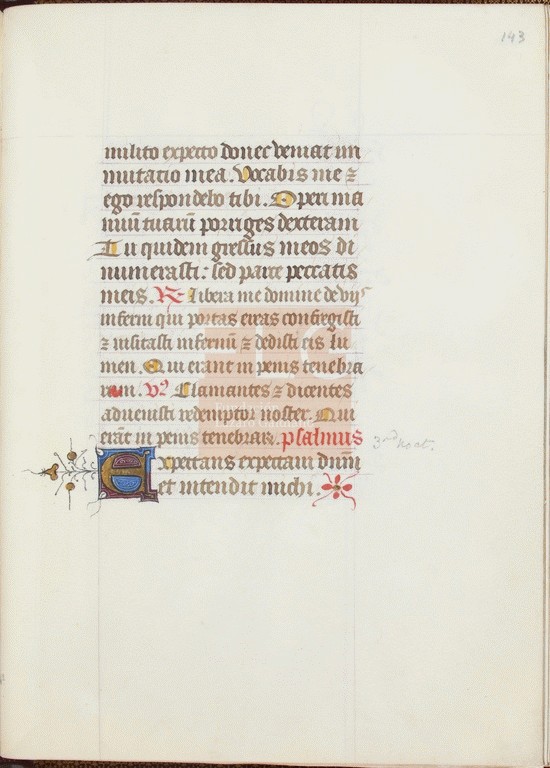 143
milito expecto donec veniat im
mutatio mea. Vocabis me ⁊
ego respondebo tibi. Operi ma
nuū tuarū porriges dexteram
Tu quidem gressus meos di
numerasti: sed parce peccatis
meis. R Libera me domine de vijs
inferni qui portas ereas confregisti
⁊ visitasti infernū ⁊ dedisti eis lu
men. Qui erant in penis tenebra
rum. V Clamantes ⁊ dicentes
advenisti redemptor noster. Qui
erāt in penis tenebrarū. psalmus
3rd Noct.
Expectans expectavi dūm
et intendit michi.